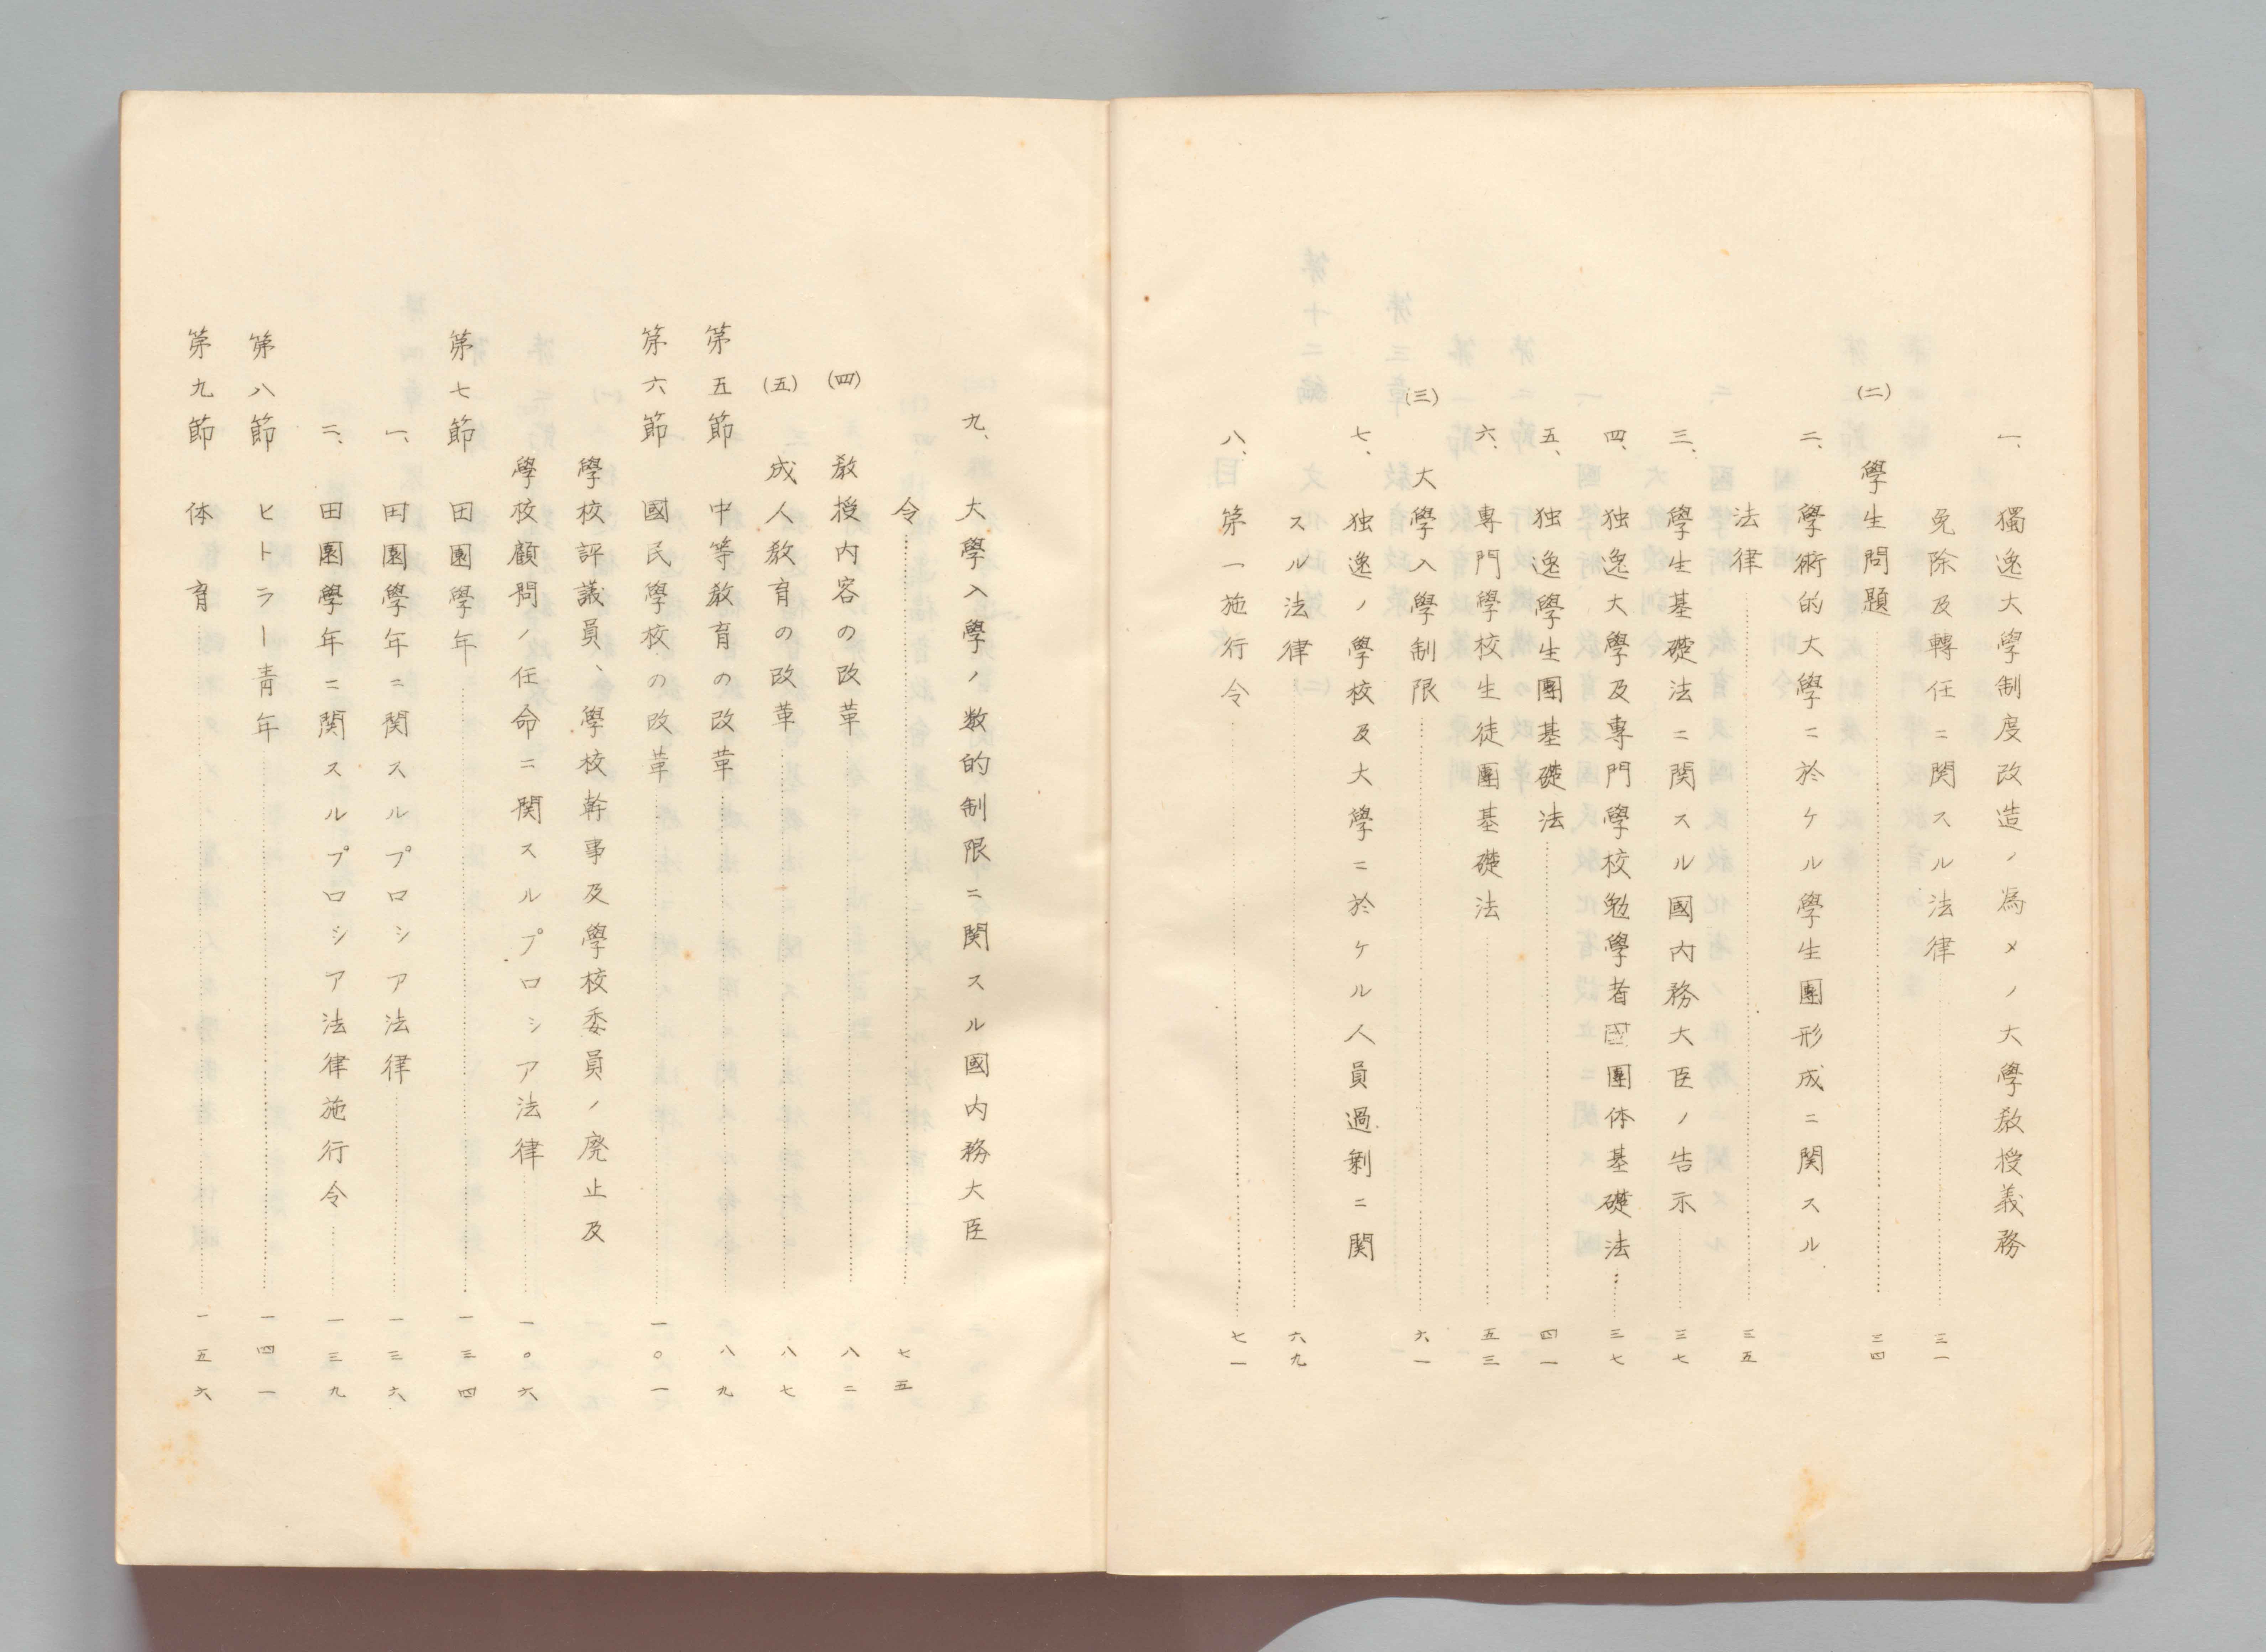 一、獨逸大學制度改造ノ為メノ大學教授義務
免除及轉任ニ関スル法律……三一
(二)學生問題……三四
二、學術的大學ニ於ケル學生團形成ニ関スル
法律……三五
三、學生基礎法ニ関スル國內務大臣ノ告示……三七
四、独逸大學及專門學校勉學者國團体基礎法……三七
五、独逸學生團基礎法……四一
六、專門學校生徒團基礎法……五三
(三)大學入學制限……六一
七、独逸ノ學校及大學ニ於ケル人員過剰ニ関
スル法律……六九
八、第一施行令……七一
九、大學入學ノ数的制限ニ関スル國内務大臣
令……七五
(四)教授内容の改革……八二
(五)成人教育の改革……八七
第五節 中等教育の改革……八九
第六節 國民學校の改革……一〇一
學校評議員、學校幹事及學校委員ノ廃止及
學校顧問ノ任命ニ関スルプロシア法律……一〇六
第七節 田園學年……一三四
一、田園學年ニ関スルプロシア法律……一三六
二、田園學年ニ関スルプロシア法律施行令……一三九
第八節 ヒトラー青年……一四一
第九節 体育……一五六